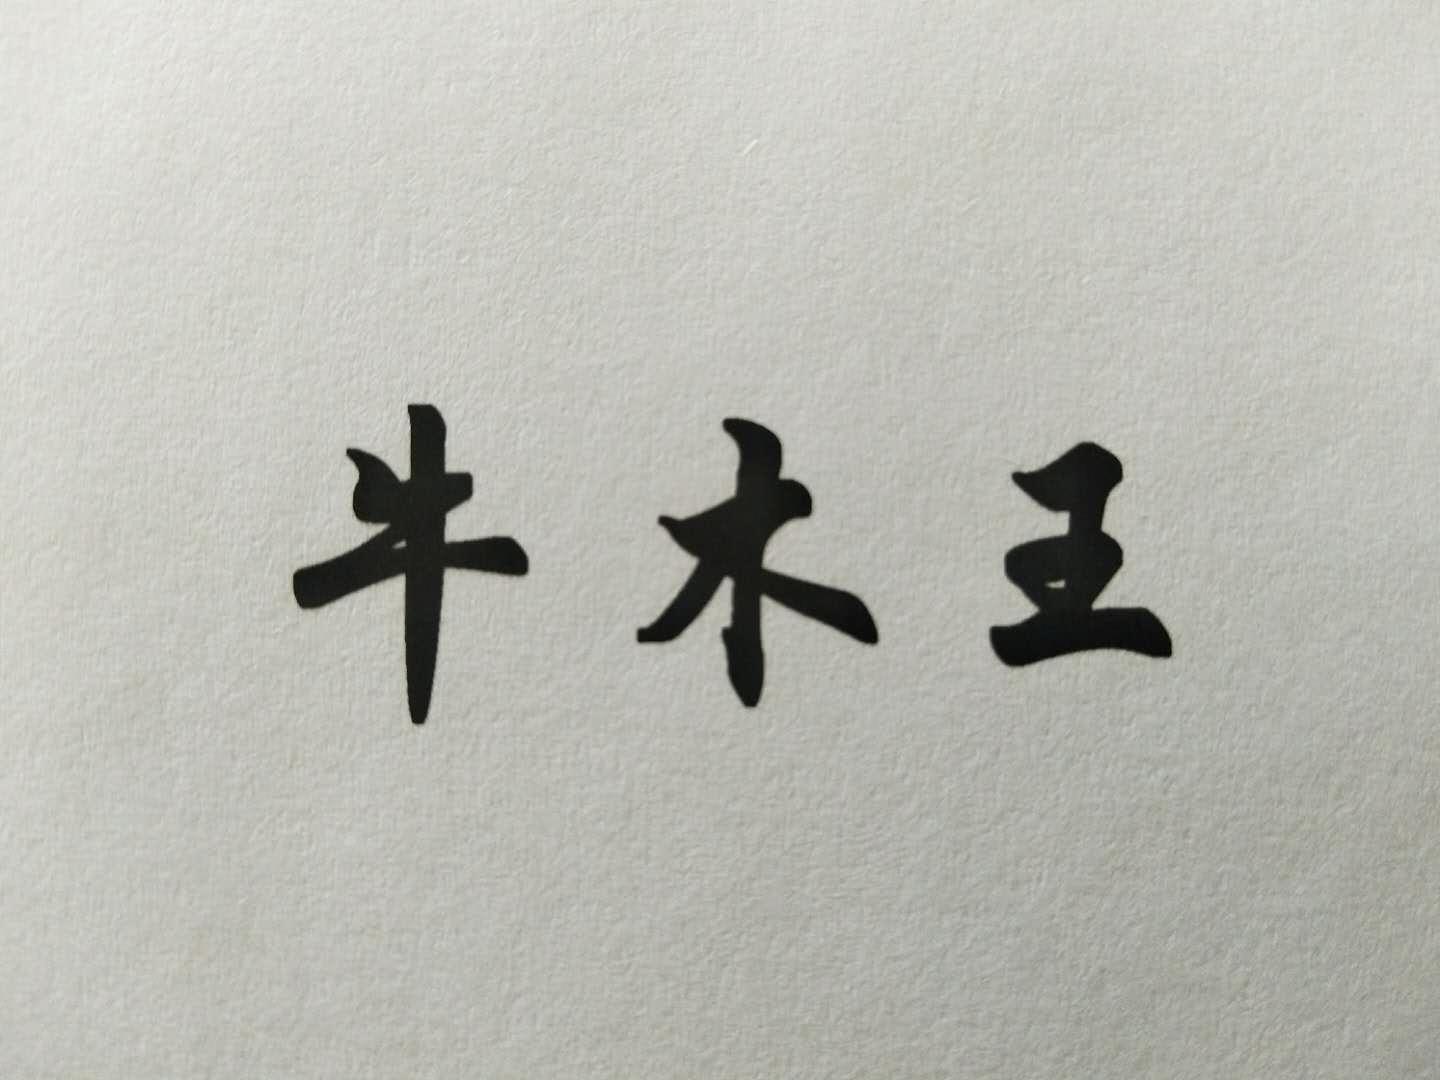 牛木王